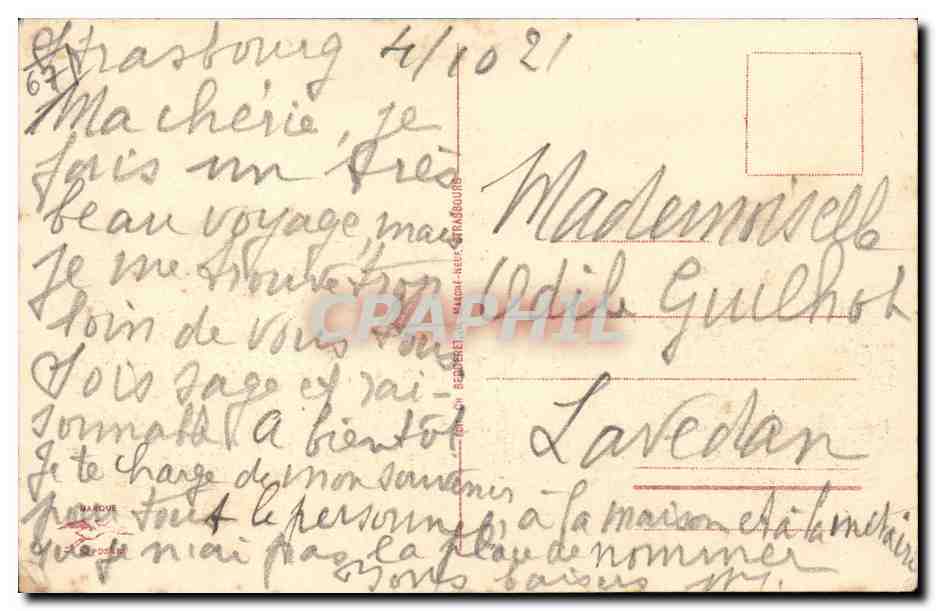 Strasbourg 4/10 21
67
Ma chérie, je
fais un très
beau voyage, mais
je me trouve trop
loin de vous tous
Sois sage et rai-
sonnable. A bientôt
Je te charge de mon souvenir
pour tout le personnel, à la maison et à la métairie
que je n'ai pas la place de nommer
Bons baisers
Mademoiselle
Odile Guilhot
Lavedan
CH. BERGERET MARCHÉ-NEUF STRASBOURG
MARQUE
CPAPHIL